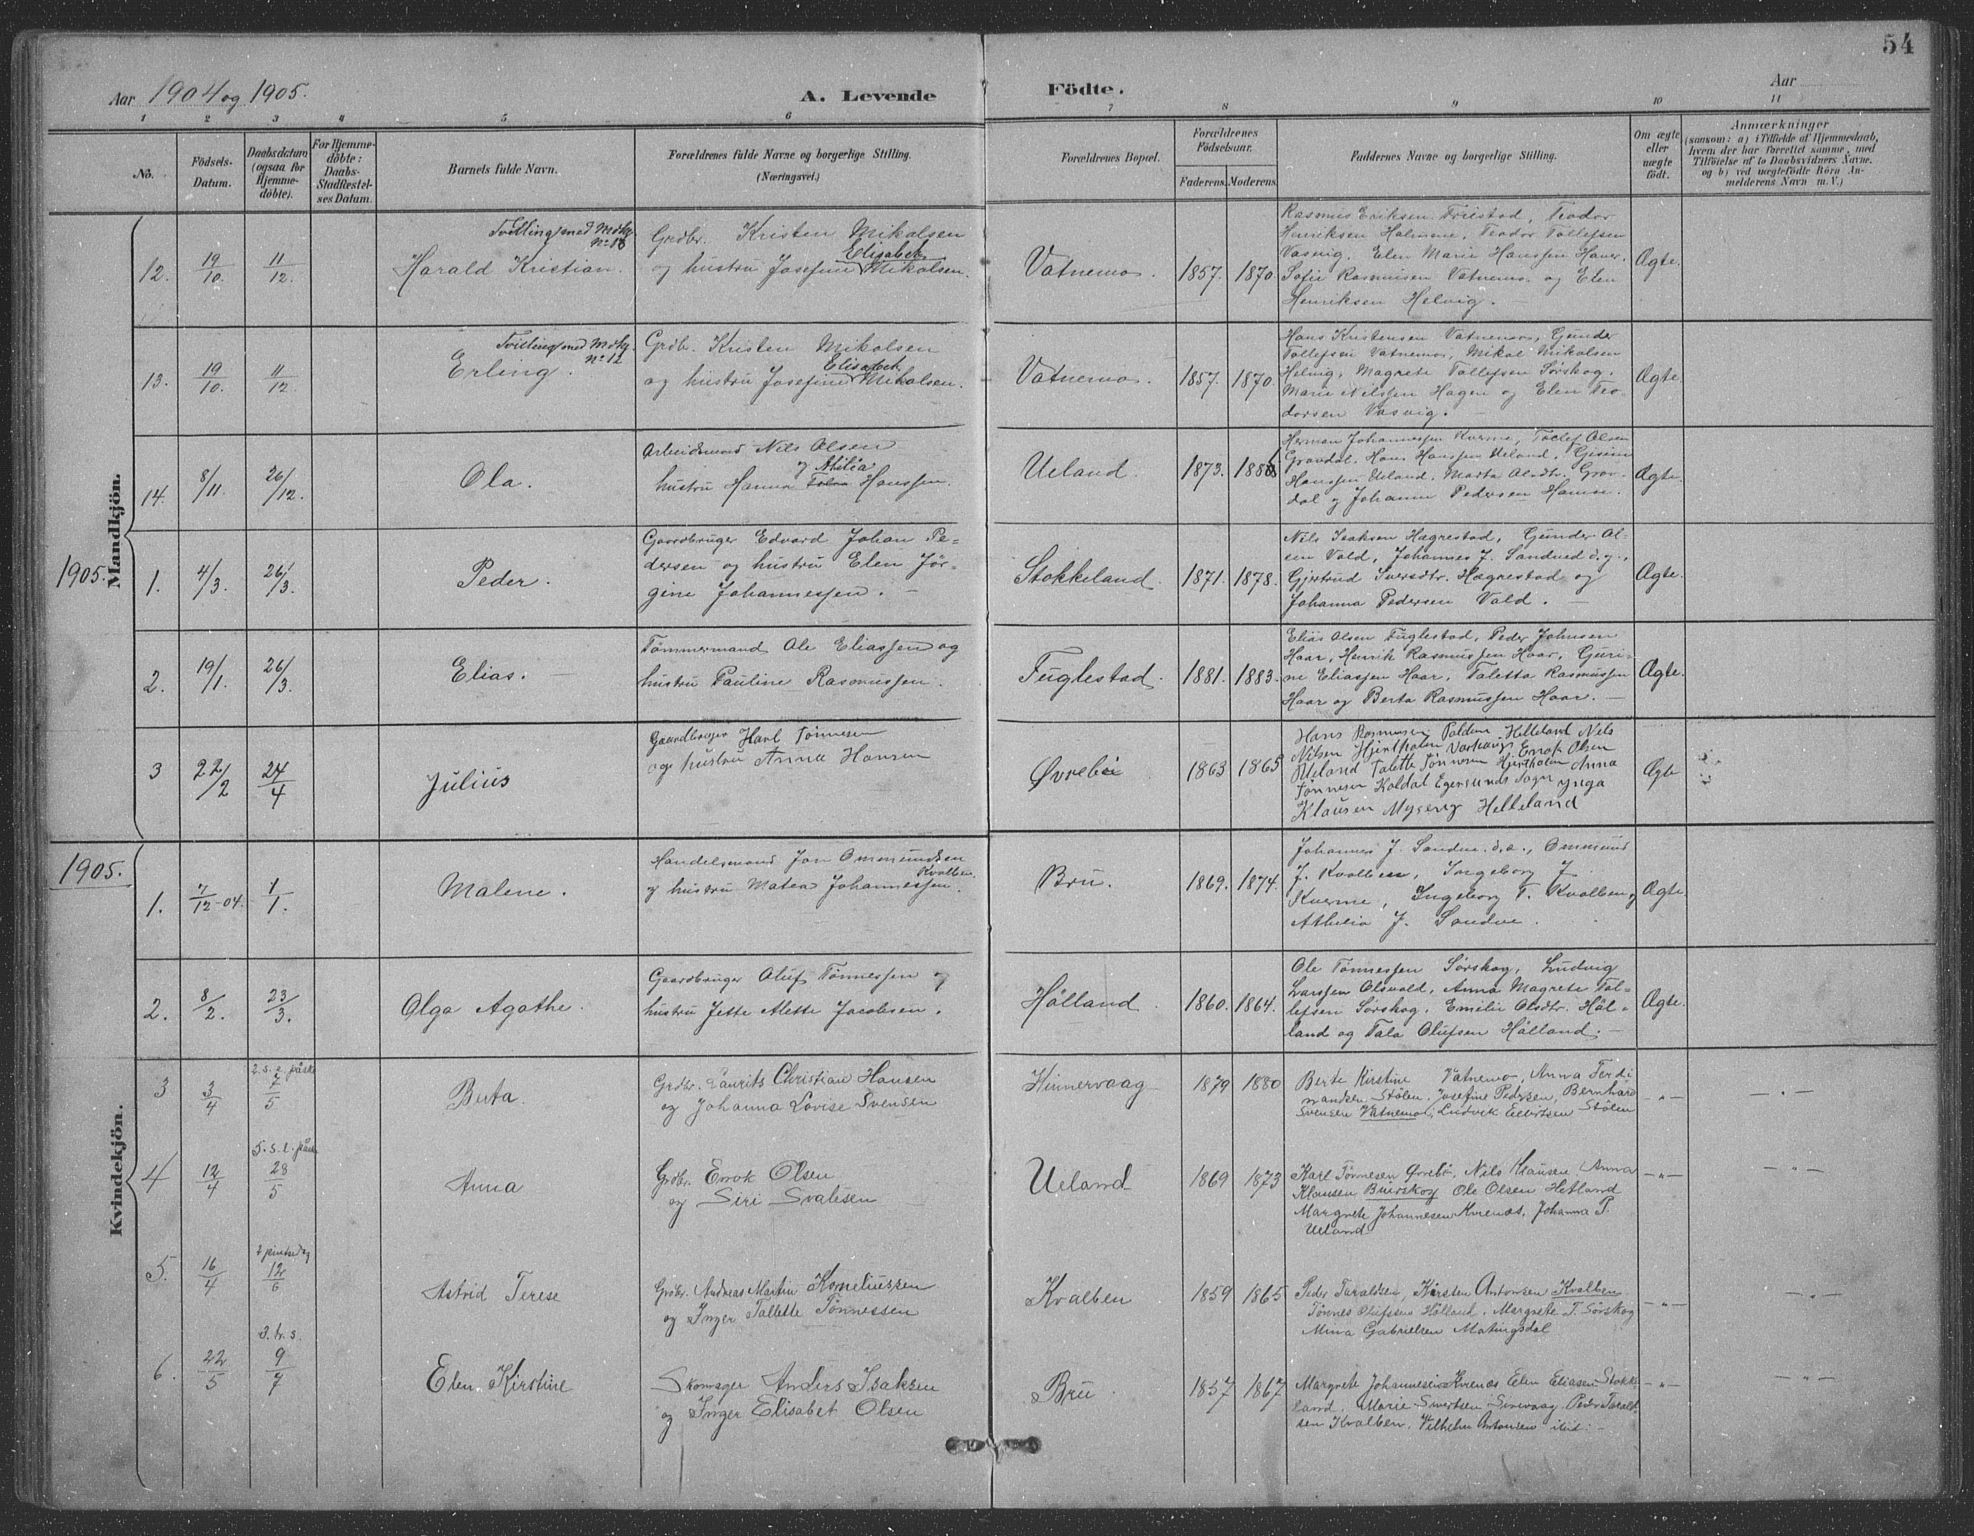 54
Aar 1904 og 1905.
A. Levende Födte.
Aar
1 2 3 4 5 6 7 8 9 10 11
No.
Födsels-Datum.
Daabsdatum (ogsaa for Hjemmedöbte).
For Hjemmedöbte: Daabs-Stadfæstelses Datum.
Barnets fulde Navn.
Forældrenes fulde Navne og borgerlige Stilling.
(Næringsvei.)
Forældrenes Bopæl.
Forældrenes Födselsaar.
Faderens. Moderens.
Faddernes Navne og borgerlige Stilling.
Om ægte eller uægte födt.
Anmærkninger
(saasom: a) i Tilfælde af Hjemmedaab, hvem der har forrettet samme, med Tilföielse af to Daabsvidners Navne. og b) ved uægtefödte Börn Anmelderens Navn m. V.)
Mandkjön.
12. 19/10. 11/12.
Tvilling med Mdkj. No 13
Harald Kristian.
Grdbr. Kristen Mikalsen
og hustru Josefine Elisabet Mikalsen.
Vatnemo. 1857. 1870.
Rasmus Eriksen Friestad, Teodor
Henriksen Holmene, Teodor Tollefsen
Vasvig, Elen Marie Hanssen Haver.
Sofie Rasmusen Vatnemo og Elen
Henriksen Helvig.
Ægte.
13. 19/10. 11/12.
Tvilling med Mdkj. No 12
Erling.
Grdb. Kristen Mikalsen
og hustru Josefine Elisabet Mikalsen.
Vatnemo. 1857. 1870.
Hans Kristensen Vatnemo, Gunder
Tollefsen Vatnemo, Mikal Mikalsen
Helvig, Magrete Tollefsen Sørskog.
Marie Nilssen Hagen og Elen Teo-
dorsen Vasvig.
Ægte.
14. 8/11. 26/12.
Ola.
Arbeidsmand Nils Olsen
og hustru Hanna Atilia Hanssen.
Ueland. 1873.
Herman Johannessen Kverme, Tollef Olsen
Gravdal, Hans Hanssen Ueland,
Hanssen Ueland, Marta Olsdtr. Grav-
dal og Johanne Pedersen
Ægte.
1905.
1. 4/3. 26/3.
Peder.
Gaardbruger Edvard Johan Pe-
dersen og hustru Elen Jør-
gine Johannessen.
Stokkeland. 1871. 1878.
Nils Isaksen Hægrestad, Gunder Ol-
sen Vold, Johannes J. Sandved d.y.,
Gjertrud Iversdtr. Hægrestad og
Johanna Pedersen Vold.
Ægte.
2. 19/1. 26/3.
Elias.
Tømmermand Ole Eliassen og
hustru Pauline Rasmussen.
Fuglestad. 1881. 1883.
Elias Olsen Fuglestad, Peder Johnsen
Haar, Henrik Rasmussen Haar, Guri-
ne Eliassen Haar, Taletta Rasmussen
Haar og Berta Rasmussen Haar.
Ægte.
3 22/2 24/4
Julius
Gaardbruger Karl Tønnesen
og hustru Anna Hansen
Øvrebø 1863 1865
Hans Rasmusen Polden Helleland Nils
Nilsen Hjertholm Varhaug, Enok Olsen
Ueland Talette Tønnesen Hjertholm Anna
Tønnesen Koldal Egersunds Sogn
Klausen Helleland
Ægte
1905.
Kvindekjön.
1. 7/12-04. 1/1.
Malene.
Handelsmand Jon Ommundsen Kvalben
og hustru Matea Johannessen.
Bru. 1869. 1874.
Johannes J. Sandve d.æ., Ommund
J. Kvalben, Ingeborg J.
Kverme, Ingeborg T. Kvalben og
Athelia J. Sandve.
Ægte
2. 8/2. 23/3.
Olga Agathe.
Gaardbruger Oluf Tønnessen og
hustru Jette Alette Jacobsen.
Hålland. 1860. 1864.
Ole Tønnessen Sørskog, Ludvig
Larssen Olsvold, Anna Magrete Tol-
lefsen Sørskog, Emilie Olsdtr. Hål-
land og Tala Olufsen Hålland.
Ægte.
3 3/4 2. s. e. påske 7/5
Berta.
Grdbr. Laurits Christian Hansen
og Johanna Lovise Svensen
Hinnervaag 1879 1880
Berte Kirstine Vatnemo, Anna Ferdi
nandsen Stølen, Josefine Pedersen, Bernhard
Svensen Vatnemo, Ludvik Eilertsen Stølen
-„- -„-
4 12/4 5. s. e. påske 28/5
Anna
Grdbr. Enok Olsen
og Siri Svalesen
Ueland 1869 1873
Karl Tønnesen Øvrebø, Nils Klausen, Anna
Klausen Buerskog Ole Olsen Hetland
Margrete Johannesen Kvenæs, Johanna P.
Ueland
-„- -„-
5. 16/4 2 pinsedag 12/6
Astrid Terese
Grdbr. Andreas Martin Korneliussen
og Inger Tallette Tønnessen
Kvalben 1859 1865
Peder Taraldsen, Kirsten Antonsen Kvalben
Tønnes Olufsen Hålland, Margrete T. Sørskog
Mina Gabrielsen Matingsdal
-„- -„-
6. 22/5 3. tr. s. 9/7
Elen Kirstine
Skomager Anders Isaksen
og Inger Elisabet Olsen
Bru 1857 1867
Margrete Johannesen Kvenæs Elen Eliasen Stokke
land, Marie Sivertsen Sirevaag, Peder Tarald
sen Kvalben, Vilhelm Antonsen ibid.
-„- -„-